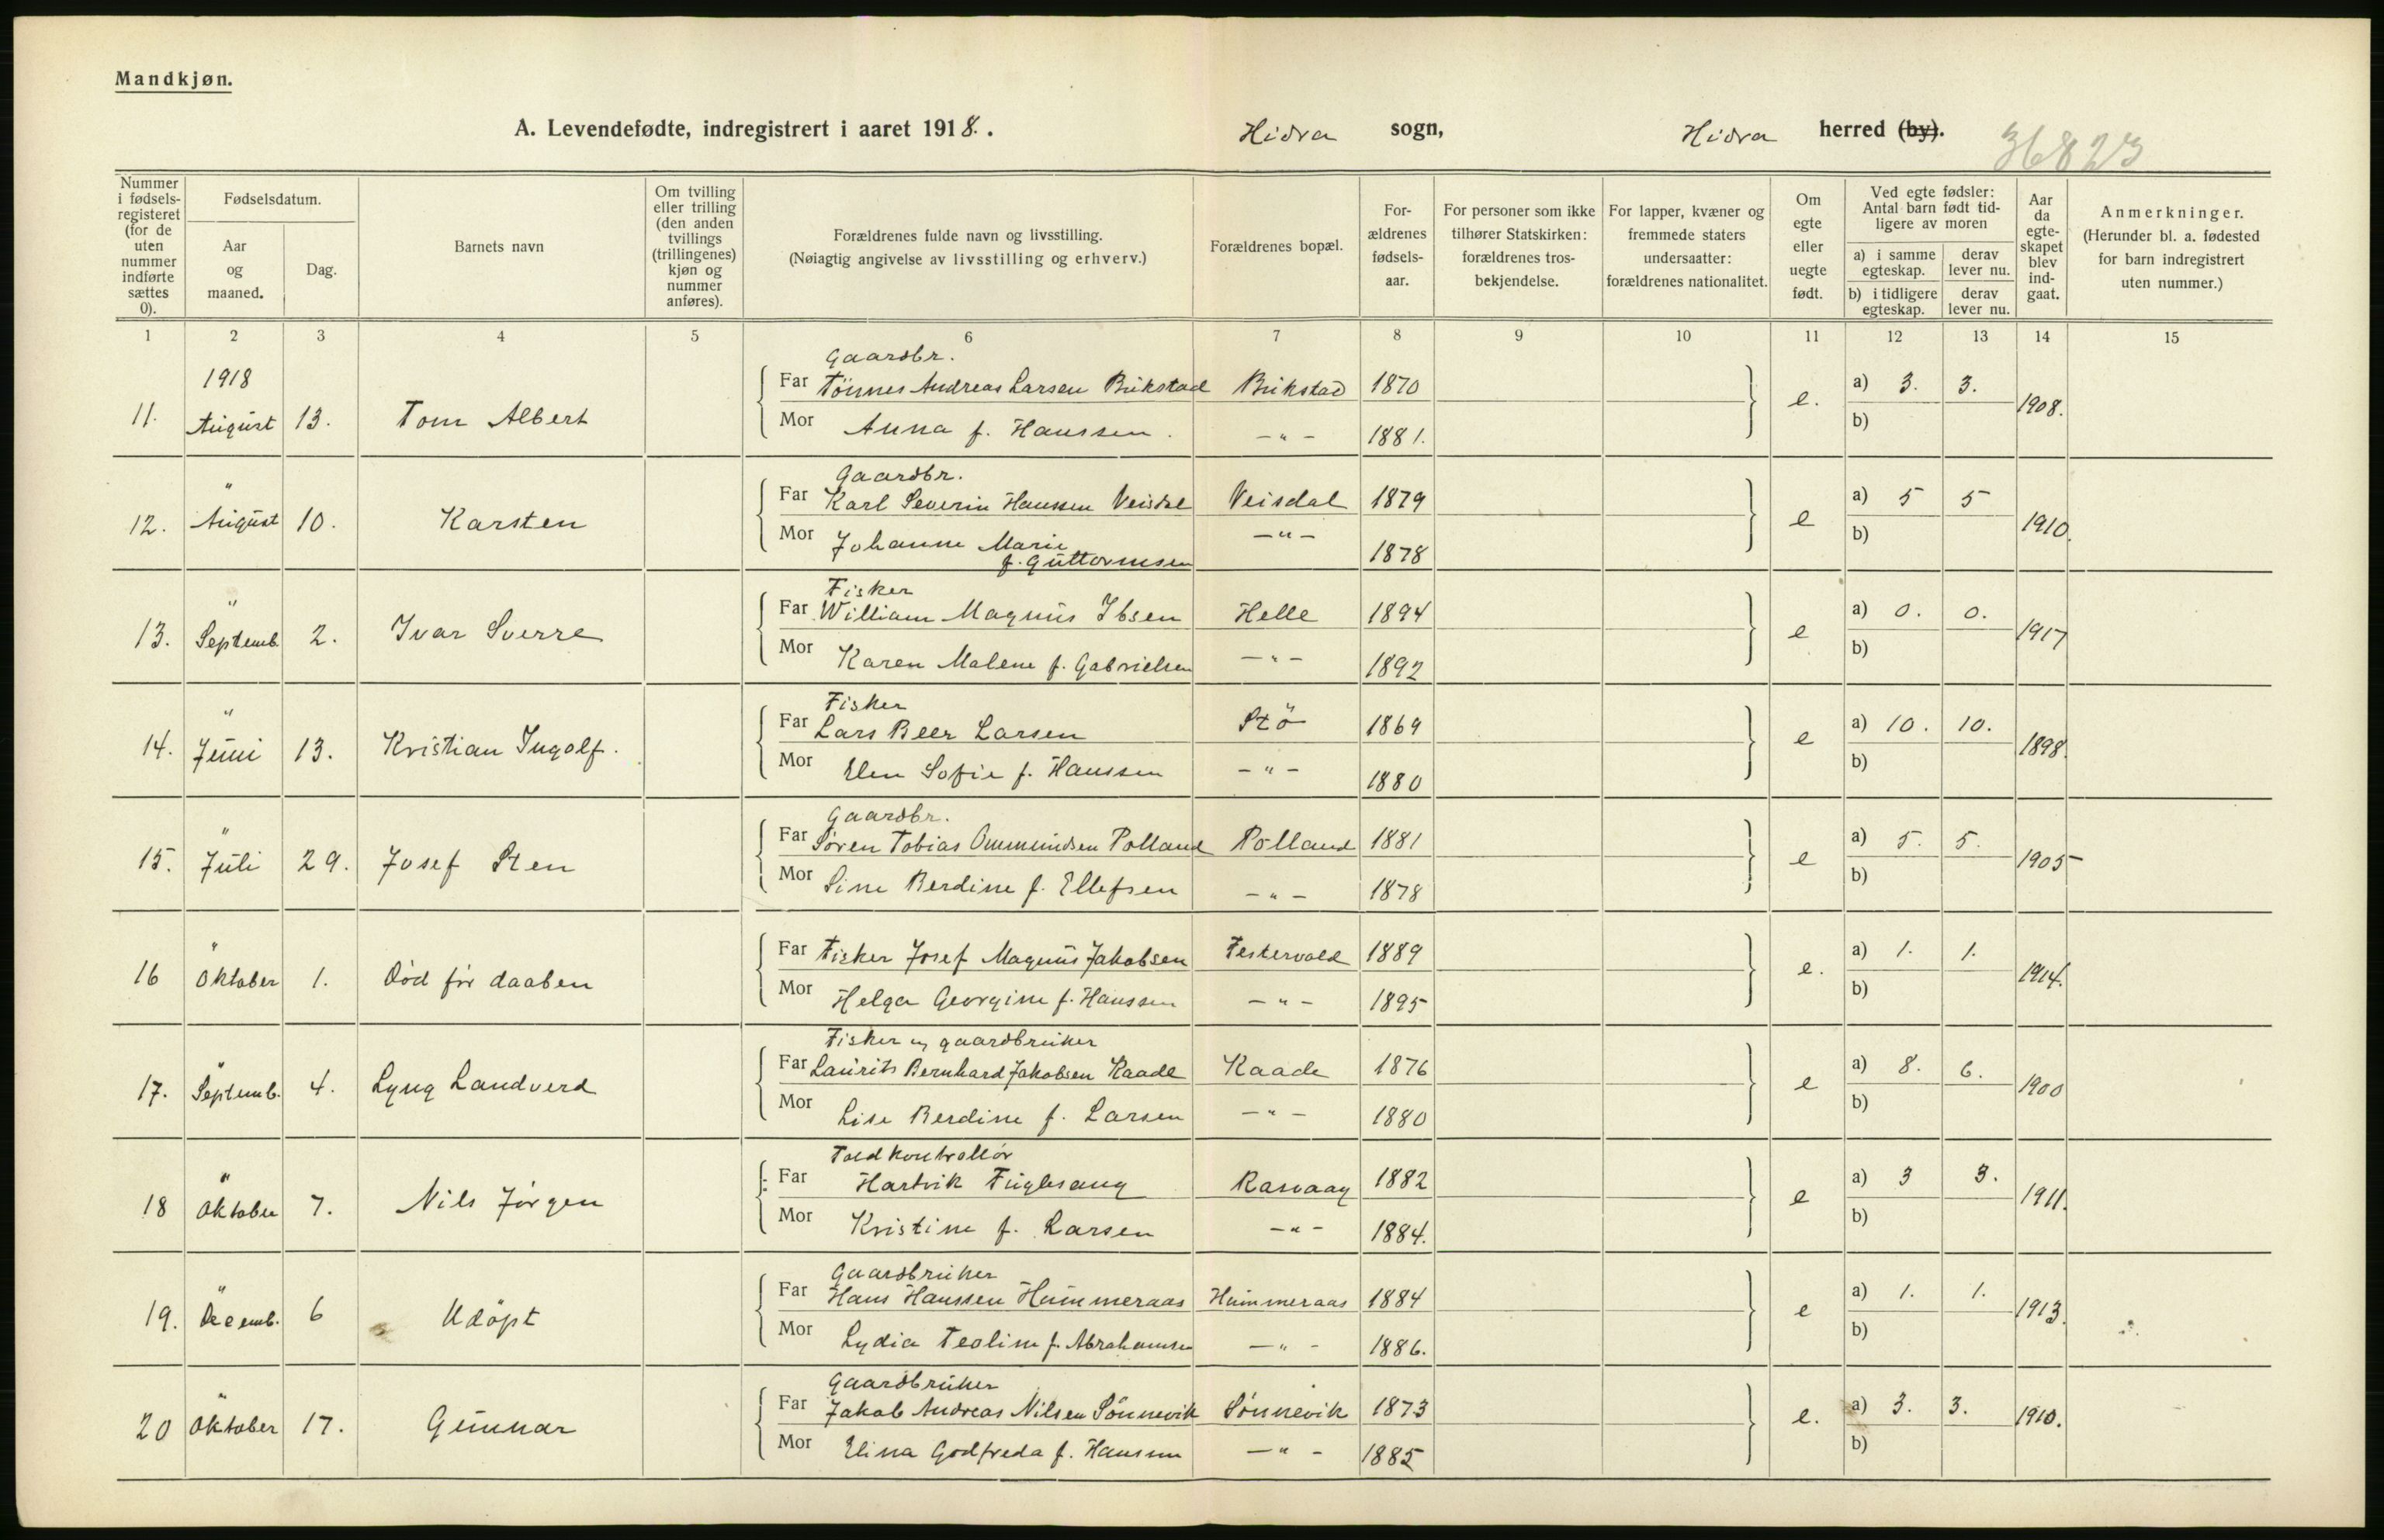 Mandkjøn.
A. Levendefødte, indregistrert i aaret 1918. . Hidra sogn, Hidra herred (by).
36823
Nummer i fødselsregisteret (for de uten nummer indførte sættes 0).
Fødselsdatum.
Aar og maaned.
Dag.
Barnets navn
Om tvilling eller trilling (den anden tvillings (trillingenes) kjøn og nummer anføres).
Forældrenes fulde navn og livsstilling.
(Nøiagtig angivelse av livsstilling og erhverv.)
Forældrenes bopæl.
For-ældrenes fødsels-aar.
For personer som ikke tilhører Statskirken: forældrenes tros-bekjendelse.
For lapper, kvæner og fremmede staters undersaatter: forældrenes nationalitet.
Om egte eller uegte født.
Ved egte fødsler: Antal barn født tid-ligere av moren
a) i samme egteskap.
derav lever nu.
b) i tidligere egteskap.
derav lever nu.
Aar da egte-skapet blev ind-gaat.
Anmerkninger.
(Herunder bl. a. fødested for barn indregistrert uten nummer.)
1 2 3 4 5 6 7 8 9 10 11 12 13 14 15
1918
Gaardbr.
11. August 13. Tom Albert Far Tönnes Andreas Larsen Brikstad Brikstad 1870 e. a) 3. 3. 1908.
Mor Anna f. Hanssen. -"- 1881. b)
Gaardbr.
12. " August 10. Karsten Far Karl Severin Hanssen Veisdal Veisdal 1879 e a) 5 5 1910.
Mor Johanne Marie f. Guttormsen -"- 1878 b)
Fisker
13. " Septemb. 2. Ivar Sverre Far William Magnus Ibsen Helle 1894 e a) 0. 0. 1917
Mor Karen Malene f. Gabrielsen -"- 1892 b)
Fisker
14. " Juni 13. Kristian Ingolf. Far Lars Beer Larsen Stö 1869 e a) 10. 10. 1898.
Mor Elen Sofie f. Hanssen -"- 1880 b)
Gaardbr.
15. " Juli 29. Josef Sten Far Søren Tobias Ommundsen Polland Polland 1881 e a) 5. 5. 1905
Mor Sine Berdine f. Ellefsen -"- 1878 b)
16 " Oktober 1. Död för daaben Far Fisker Josef Magnus Jakobsen Festervold 1889 e. a) 1. 1. 1914.
Mor Helga Georgine f. Hanssen -"- 1895 b)
Fisker og gaardbruker
17. " Septemb. 4. Lyng Landverd Far Laurits Bernhard Jakobsen Kaade Kaade 1876 e a) 8. 6. 1900
Mor Lise Berdine f. Larsen -"- 1880 b)
Toldkontrollör
18 " Oktober 7. Nils Jörgen Far Hartvik Fuglesang Rasvaag 1882 e a) 3 3. 1911.
Mor Kristine f. Larsen -"- 1884. b)
Gaardbruker
19. " Decemb. 6 Udöpt Far Hans Hanssen Hummeraas Hummeraas 1884 e a) 1. 1. 1913.
Mor Lydia Teoline f. Abrahamsen -"- 1886. b)
Gaardbruker
20 " Oktober 17. Gunnar Far Jakob Andreas Nilsen Sönnevik Sönnevik 1873 e. a) 3. 3. 1910.
Mor Elina Godfreda f. Hanssen -"- 1885 b)